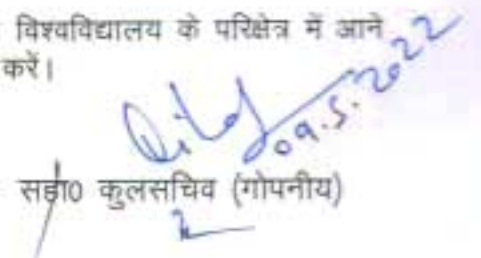 विश्वविद्यालय के परिक्षेत्र में आने
करें।
09.5.2022
सहा0 कुलसचिव (गोपनीय)